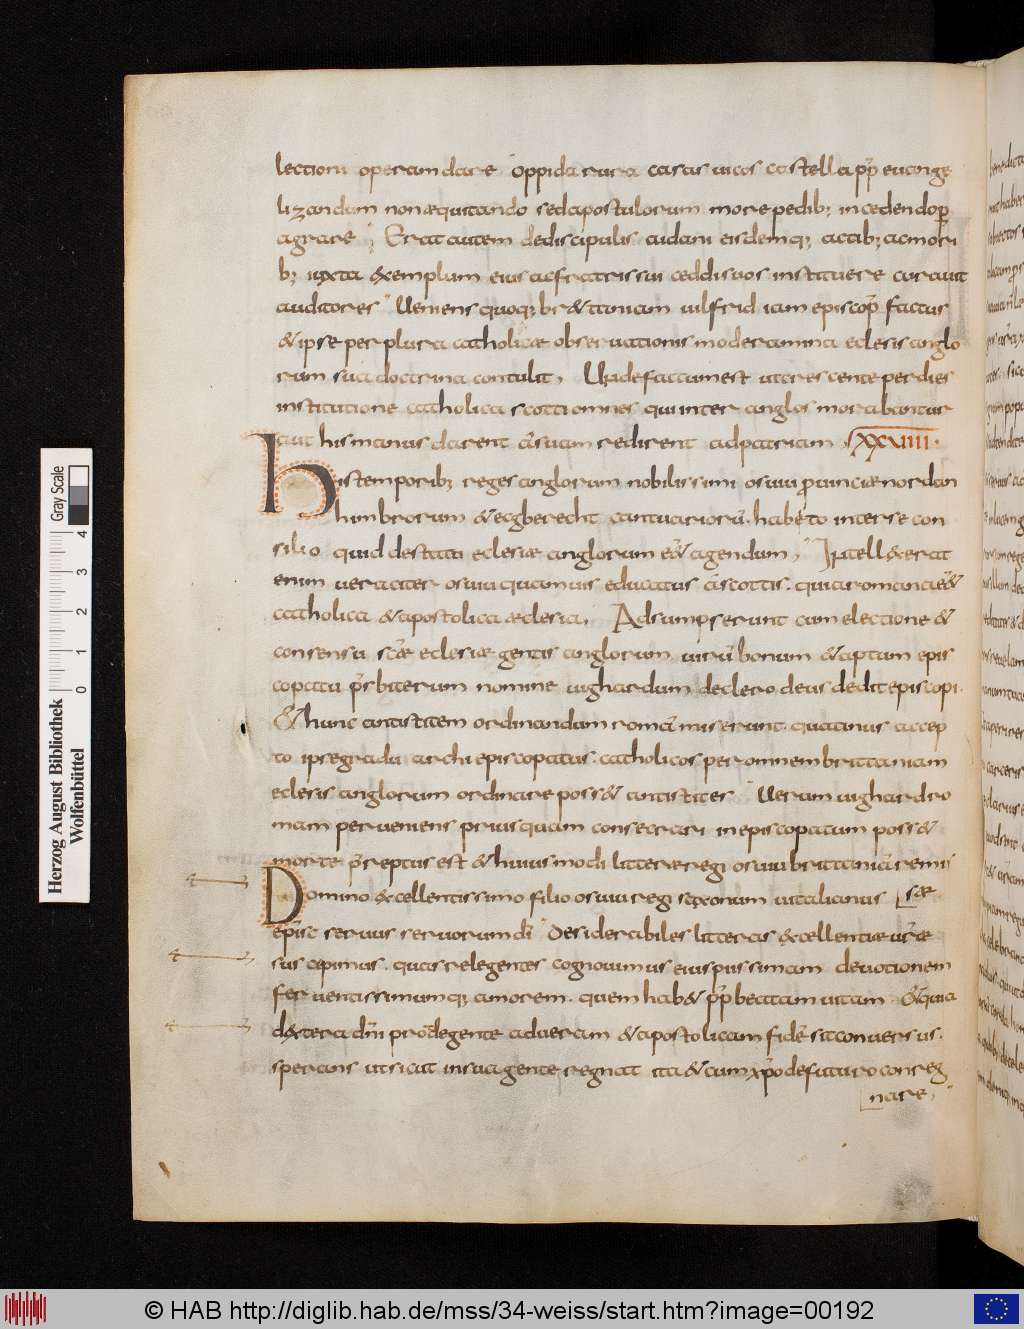 lectioni operam dare oppida rura casas uicos castella pp̄ euange
lizandum non æquitando sed apostolorum more pedib; incedendo p̲
agrare ; Erat autem de discipulis aidani eisdemq; actib; ac mori
b; iuxta exemplum eius ac fratris sui ceddi suos instituere curauit
auditores Ueniens quoq; br&taniam uilfrid iam episcop̄ factus
& ipse per plura catholicæ obseruationis moderamina eclesis anglo
rum sua doctrina contulit, Unde factum est ut crescente per dies
institutione catholica scotti omnes qui inter anglos morabantur
aut his manus darent aut̄ suam redirent ad patriam, XXVIIII.
His temporib; reges anglorum nobilissimi osuiu ꝓuinciæ nordan
himbrorum & ecgberecht cantuariorū. habito inter se con
silio quid de statu eclesiæ anglorum ēēt agendum, Intellexerat
enim ueraciter osuiu quamuis educatus a scottis. quia romana ēēt
catholica & apostolica æclesia, Adsumpserunt cum electione &
consensu scāe eclesiæ gentis anglorum uirū bonum & aptum epis
copatu p̄rsbiterum nomine uighardum de clero deus dedit episcopi.
& hunc antistitem ordinandum romā miserunt. quatinus accep
to ipse gradu archiepiscopatus. catholicos per omnem brittaniam
eclesiis anglorum ordinare poss& antistites Uerum uighard ro
mam perueniens priusquam consecrari in episcopatum poss&
morte p̄reptus est & huiusmodi litteræ regi osuiu brittaniā remis
Domino excellentissimo filio osuiu regi saxonum uitalianus sæ
episc̄ seruus seruorum dī Desiderabiles litteras excellentiæ ur̄æ
suscepimus. quas relegentes cognouimus eius piissimam deuotionem
feruentissimumq; amorem. quem hab& pp̄ beatam uitam &quia
dextera dnī protegente ad ueram & apostolicam fidē sit conuersus.
sperans ut sicut in sua gente regnat ita & cum xp̄o de futuro conreg
nare,
Herzog August Bibliothek
Wolfenbüttel
0 1 2 3 4
Gray Scale
© HAB http://diglib.hab.de/mss/34-weiss/start.htm?image=00192